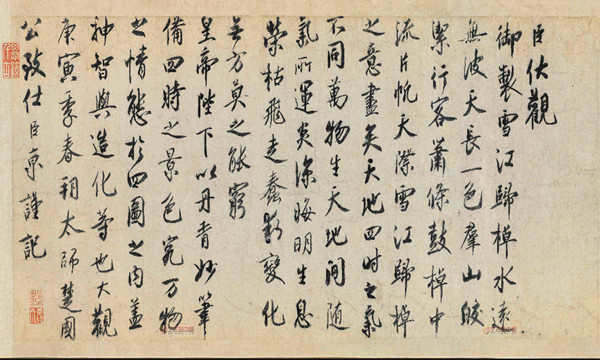 臣伏觀
御製雪江歸棹水遠
無波天長一色羣山皎
潔行客蕭條鼓棹中
流片帆天際雪江歸棹
之意盡矣天地四時之氣
不同萬物生天地間隨
氣所運炎涼晦明生息
榮枯飛走蠢動變化
無方莫之能窮
皇帝陛下以丹青妙筆
備四時之景色究万物
之情態於四圖之内盖
神智與造化等也大觀
庚寅季春朔太師楚國
公致仕臣京謹記